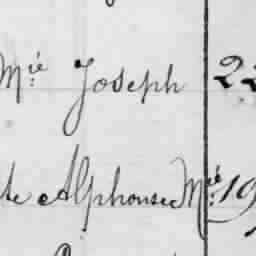 Mié Joseph 22
te Alphonse Mié 19